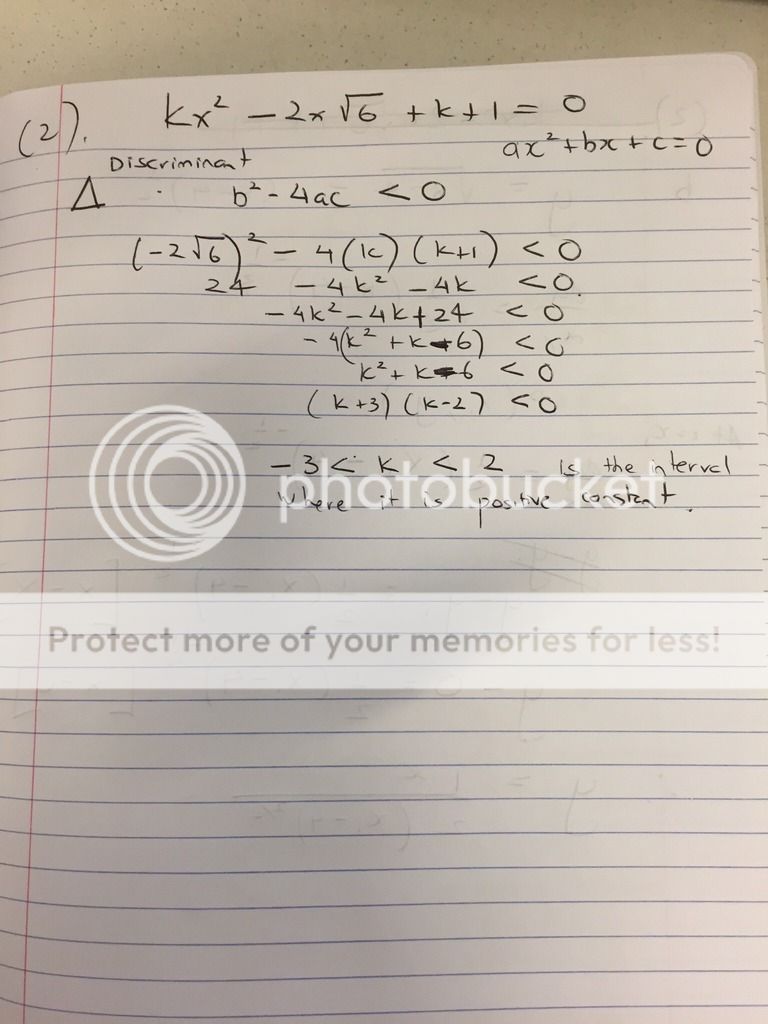 (2). kx² - 2x √6 + k + 1 = 0
ax² + bx + c = 0
Discriminant
Δ b² - 4ac < 0
(-2√6)² - 4(k)(k+1) < 0
24 - 4k² - 4k < 0
-4k² - 4k + 24 < 0
-4(k² + k - 6) < 0
k² + k - 6 < 0
(k+3)(k-2) < 0
-3 < k < 2 is the interval
where it is positive constant.
photobucket
Protect more of your memories for less!